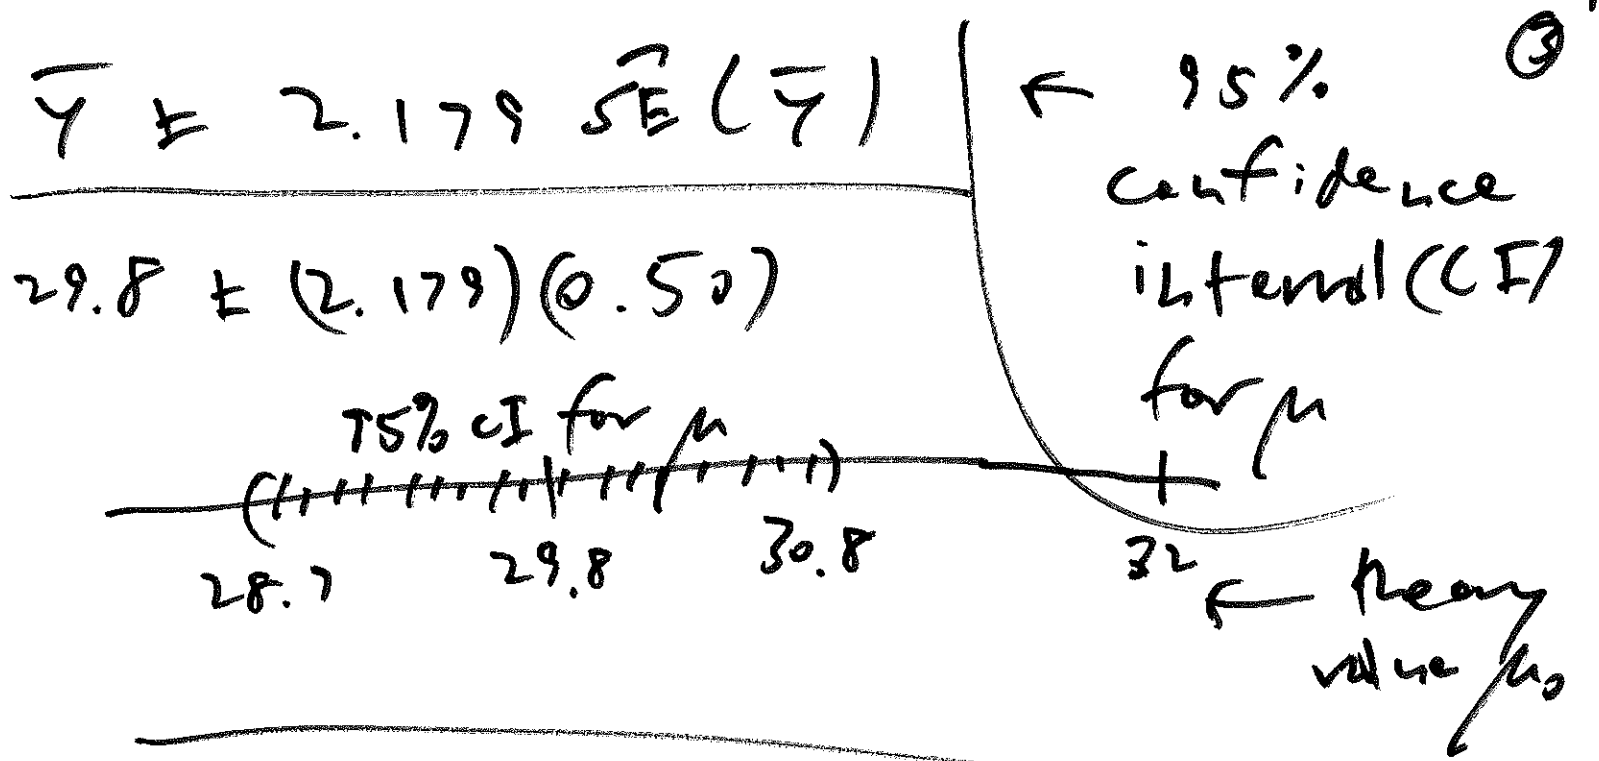 ③
Ȳ ± 2.179 ŜE(Ȳ)
← 95%
confidence
interval (CI)
for μ
29.8 ± (2.179)(0.50)
95% CI for μ
28.7 29.8 30.8 32
← theory
value μ₀